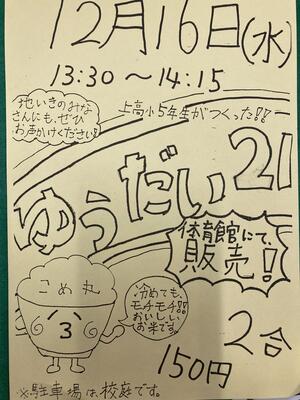 12月16日(水)
13:30～14:15
地いきのみな
さんにも、ぜひ
お声かけください!
上高小5年生がつくった!!
ゆうだい21
体育館にて、
販売!
こめ丸
冷めても、
モチモチ!!
おいしい
お米です。
2合
150円
※駐車場は、校庭です。